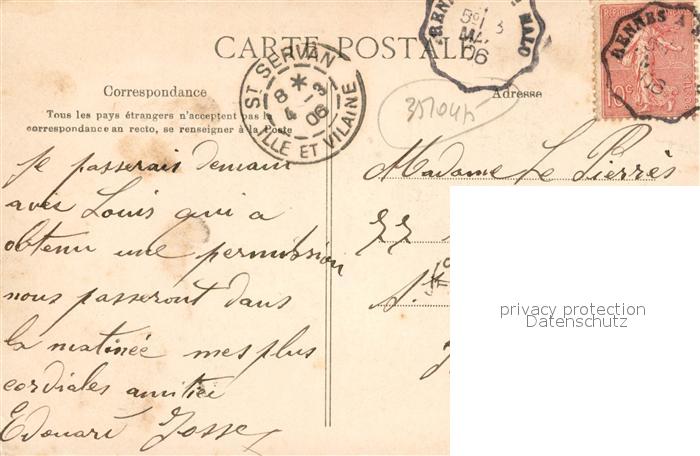 CARTE POSTALE
Correspondance
Tous les pays étrangers n'acceptent pas la
correspondance au recto, se renseigner à la Poste
Adresse
ST SERVAN
8
4 - 3
06
ILLE ET VILAINE
RENNES A ST MALO
MA
06
RENNES A S
06
10c
Je passerais demain
avec Louis qui a
obtenu une permission
nous passeront dans
la matinée mes plus
cordiales amitiés
Edouard Josse
Madame Le Pierrès
privacy protection
Datenschutz